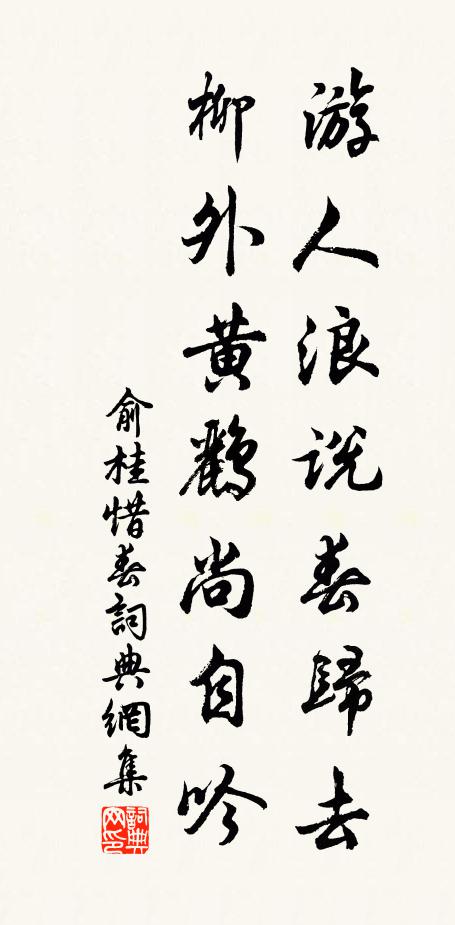 游人浪説春歸去
柳外黃鸝尚自吟
俞桂惜春詞典網集
詞典网印